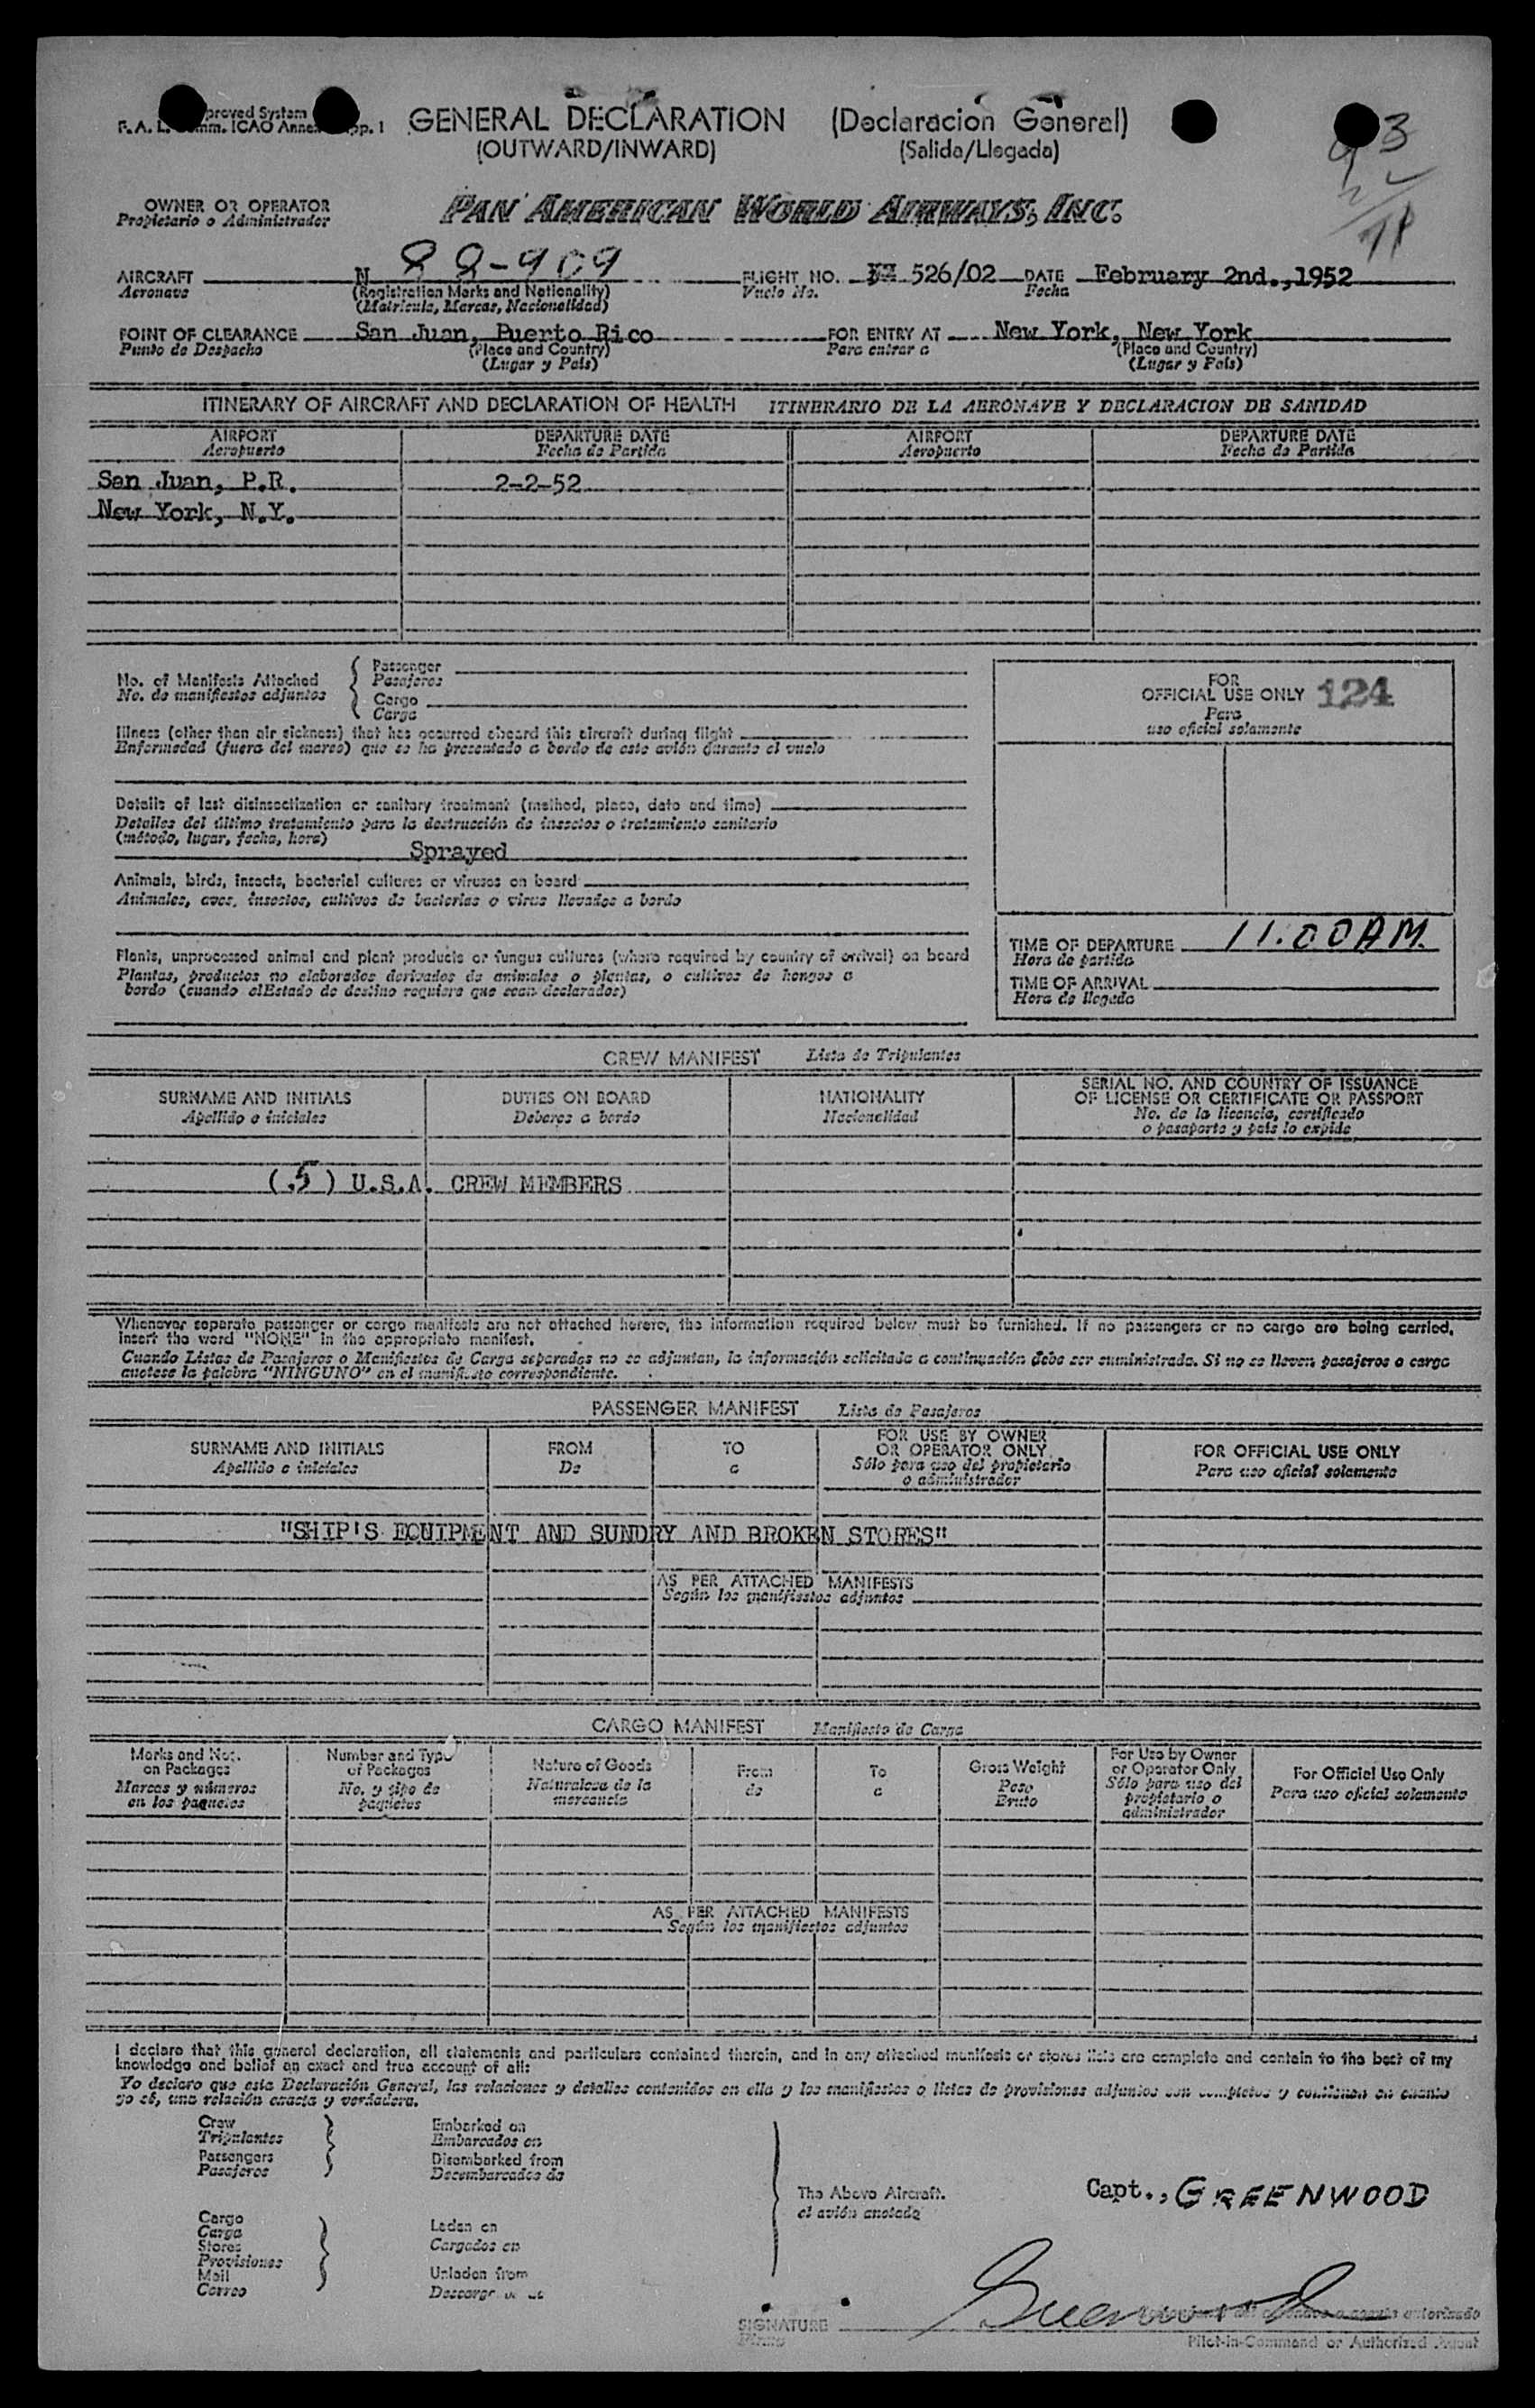 GENERAL DECLARATION (Declaracion General)
(OUTWARD/INWARD) (Salida/Llegada)
OWNER OR OPERATOR PAN AMERICAN WORLD AIRWAYS, INC.
Propietario o Administrador
AIRCRAFT N 88-909 FLIGHT NO. 526/02 DATE February 2nd.,1952
Aeronave (Registration Marks and Nationality) Vuelo No. Fecha
(Matricula, Marcas, Nacionalidad)
POINT OF CLEARANCE San Juan, Puerto Rico FOR ENTRY AT New York, New York
Punto de Despacho (Place and Country) Para entrar a (Place and Country)
(Lugar y País) (Lugar y País)
ITINERARY OF AIRCRAFT AND DECLARATION OF HEALTH ITINERARIO DE LA AERONAVE Y DECLARACION DE SANIDAD
AIRPORT DEPARTURE DATE AIRPORT DEPARTURE DATE
Aeropuerto Fecha de Partida Aeropuerto Fecha de Partida
San Juan, P.R. 2-2-52
New York, N.Y.
No. of Manifests Attached
No. de manifiestos adjuntos
Passenger
Pasajeros
Cargo
Carga
FOR
OFFICIAL USE ONLY 124
Para
uso oficial solamente
Illness (other than air sickness) that has occurred aboard this aircraft during flight
Enfermedad (fuera del mareo) que se ha presentado a bordo de este avión durante el vuelo
Details of last disinsectization or sanitary treatment (method, place, date and time)
Detalles del último tratamiento para la destrucción de insectos o tratamiento sanitario
(método, lugar, fecha, hora)
Sprayed
Animals, birds, insects, bacterial cultures or viruses on board
Animales, aves, insectos, cultivos de bacterias o virus llevados a bordo
Plants, unprocessed animal and plant products or fungus cultures (where required by country of arrival) on board
Plantas, productos no elaborados derivados de animales o plantas, o cultivos de hongos a
bordo (cuando elEstado de destino requiera que sean declarados)
TIME OF DEPARTURE 11.00AM.
Hora de partida
TIME OF ARRIVAL
Hora de llegada
CREW MANIFEST Lista de Tripulantes
SURNAME AND INITIALS DUTIES ON BOARD NATIONALITY SERIAL NO. AND COUNTRY OF ISSUANCE
OF LICENSE OR CERTIFICATE OR PASSPORT
Apellido e iniciales Deberes a bordo Nacionalidad No. de la licencia, certificado
o pasaporte y país lo expide
(5) U.S.A. CREW MEMBERS
Whenever separate passenger or cargo manifests are not attached hereto, the information required below must be furnished. If no passengers or no cargo are being carried,
insert the word "NONE" in the appropriate manifest.
Cuando Listas de Pasajeros o Manifiestos de Carga separados no se adjuntan, la información solicitada a continuación debe ser suministrada. Si no se lleven pasajeros o carga
anotese la palabra "NINGUNO" en el manifiesto correspondiente.
PASSENGER MANIFEST Lista de Pasajeros
SURNAME AND INITIALS FROM TO FOR USE BY OWNER
OR OPERATOR ONLY FOR OFFICIAL USE ONLY
Apellido e iniciales De a Sólo para uso del propietario
o administrador Para uso oficial solamente
"SHIP'S EQUIPMENT AND SUNDRY AND BROKEN STORES"
AS PER ATTACHED MANIFESTS
Según los manifiestos adjuntos
CARGO MANIFEST Manifiesto de Carga
Marks and Nos.
on Packages
Marcas y números
en los paquetes
Number and Type
of Packages
No. y tipo de
paquetes
Nature of Goods
Naturaleza de la
mercancía
From
de
To
a
Gross Weight
Peso
Bruto
For Use by Owner
or Operator Only
Sólo para uso del
propietario o
administrador
For Official Use Only
Para uso oficial solamente
AS PER ATTACHED MANIFESTS
Según los manifiestos adjuntos
I declare that this general declaration, all statements and particulars contained therein, and in any attached manifests or stores lists are complete and contain to the best of my
knowledge and belief an exact and true account of all:
Yo declaro que esta Declaración General, las relaciones y detalles contenidos en ella y los manifiestos o listas de provisiones adjuntos son completos y contienen en cuanto
yo sé, una relación exacta y verdadera.
Crew
Tripulantes
Passengers
Pasajeros
Embarked on
Embarcados en
Disembarked from
Desembarcados de
Cargo
Carga
Stores
Provisiones
Mail
Correo
Laden on
Cargados en
Unladen from
The Above Aircraft.
el avión anotado
Capt., GREENWOOD
Greenwood
SIGNATURE
Firma
Pilot-in-Command or Authorized Agent